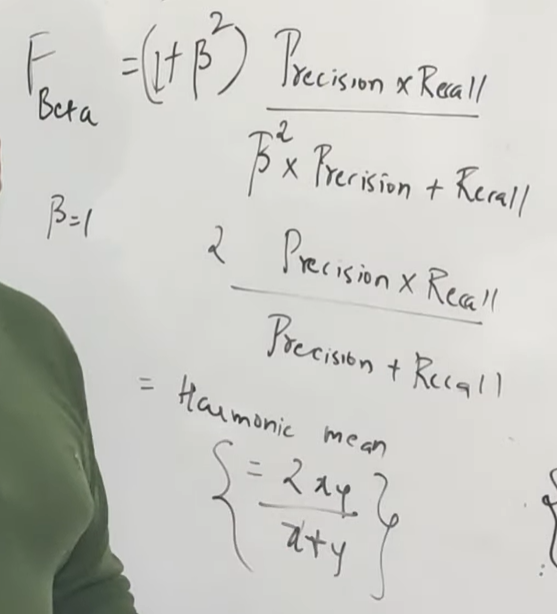 F Beta = (1 + β²) Precision x Recall
β² x Precision + Recall
β=1
2 Precision x Recall
Precision + Recall
= Harmonic mean
{ = 2xy
x+y }